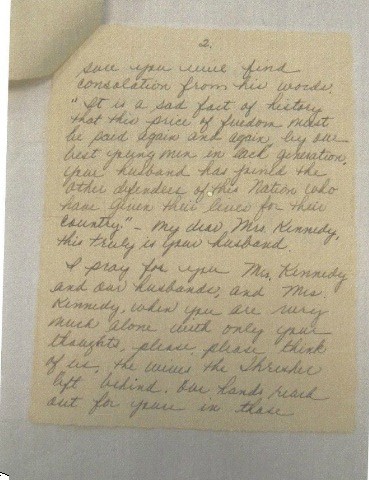 2.
sure you will find
consolation from his words.
"It is a sad fact of history
that this price of freedom must
be paid again and again by our
best young men in each generation,
your husband has joined the
other defenders of this Nation who
have given their lives for their
country." - My dear, Mrs. Kennedy,
this truly is your husband.
I pray for you Mrs. Kennedy
and our husbands, and Mrs.
Kennedy, when you are very
much alone with only your
thoughts, please, please think
of us, the wives the Thresher
left behind. Our hands reach
out for yours in those